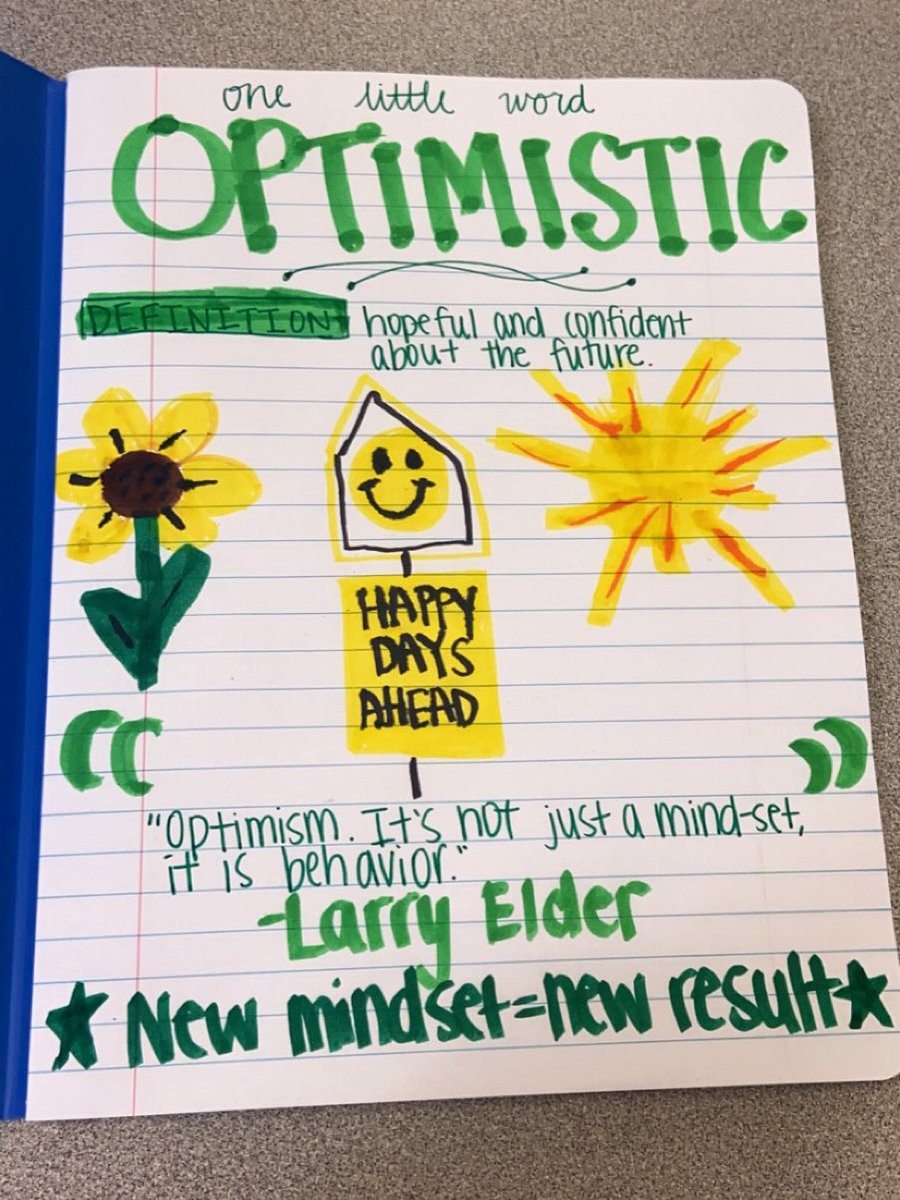 one little word
OPTIMISTIC
DEFINITION hopeful and confident
about the future.
HAPPY
DAYS
AHEAD
"Optimism. It's not just a mind-set,
it is behavior."
-Larry Elder
★ New mindset=new result★